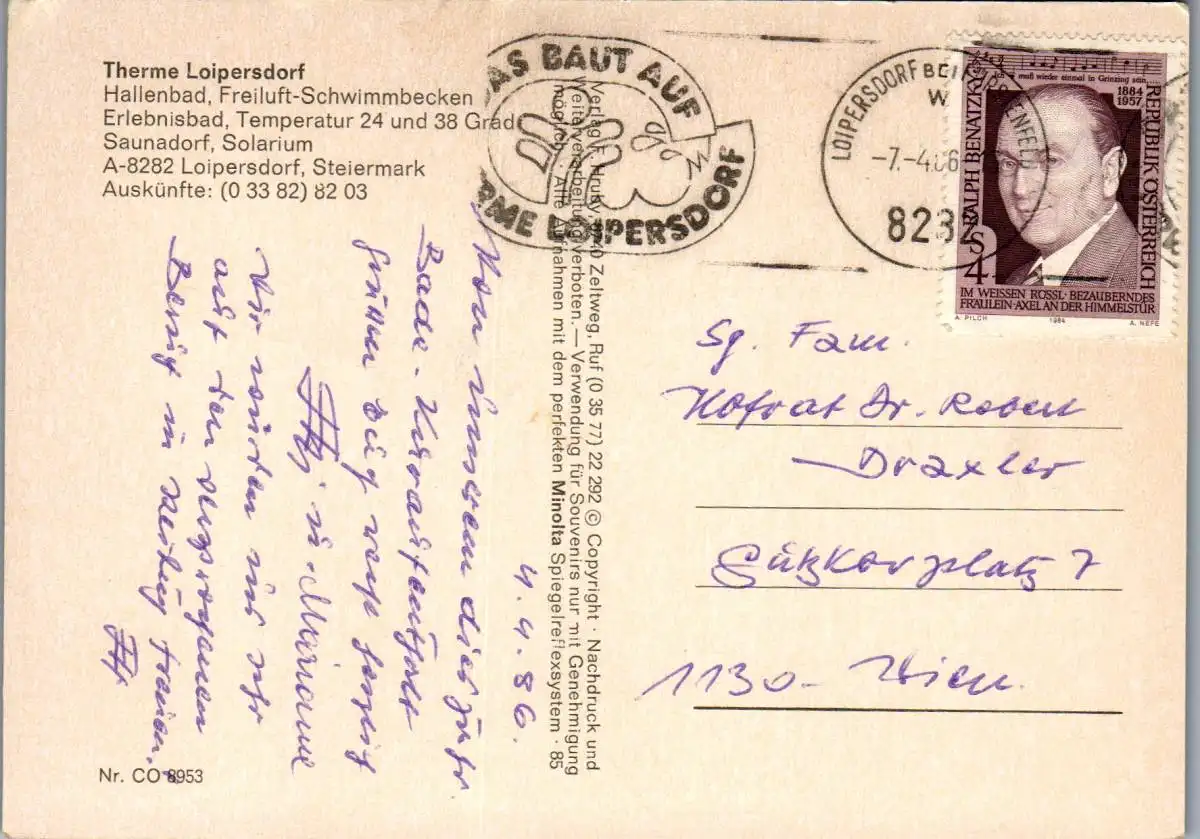 Therme Loipersdorf
Hallenbad, Freiluft-Schwimmbecken
Erlebnisbad, Temperatur 24 und 38 Grad
Saunadorf, Solarium
A-8282 Loipersdorf, Steiermark
Auskünfte: (0 33 82) 82 03
AS BAUT AUF
RME LOIPERSDORF
LOIPERSDORF BEI FÜRSTENFELD
-7.-4.86
8282
muß wieder einmal in Grinzing sein,
1884
1957
RALPH BENATZKY
REPUBLIK ÖSTERREICH
S 4
IM WEISSEN RÖSSL·BEZAUBERNDES
FRÄULEIN·AXEL AN DER HIMMELSTÜR
A. PILCH 1984 A. NEFE
Verlag F. Hruby, Zeltweg, Ruf (0 35 77) 22 292 © Copyright · Nachdruck und
Weiterverarbeitung verboten. — Verwendung für Souvenirs nur mit Genehmigung
möglich. · Alle Aufnahmen mit dem perfekten Minolta Spiegelreflexsystem · 85
4. 4. 86.
Von unserem diesjähr.
Bade-Kuraufenthalt
grüßen Euch recht herzlich
u. Marianne
Wir würden uns sehr
auf den versprochenen
Besuch in freuen.
Sg. Fam.
Hofrat Dr. Robert
Draxler
Gützkowplatz 7
1130- Wien.
Nr. CO 8953